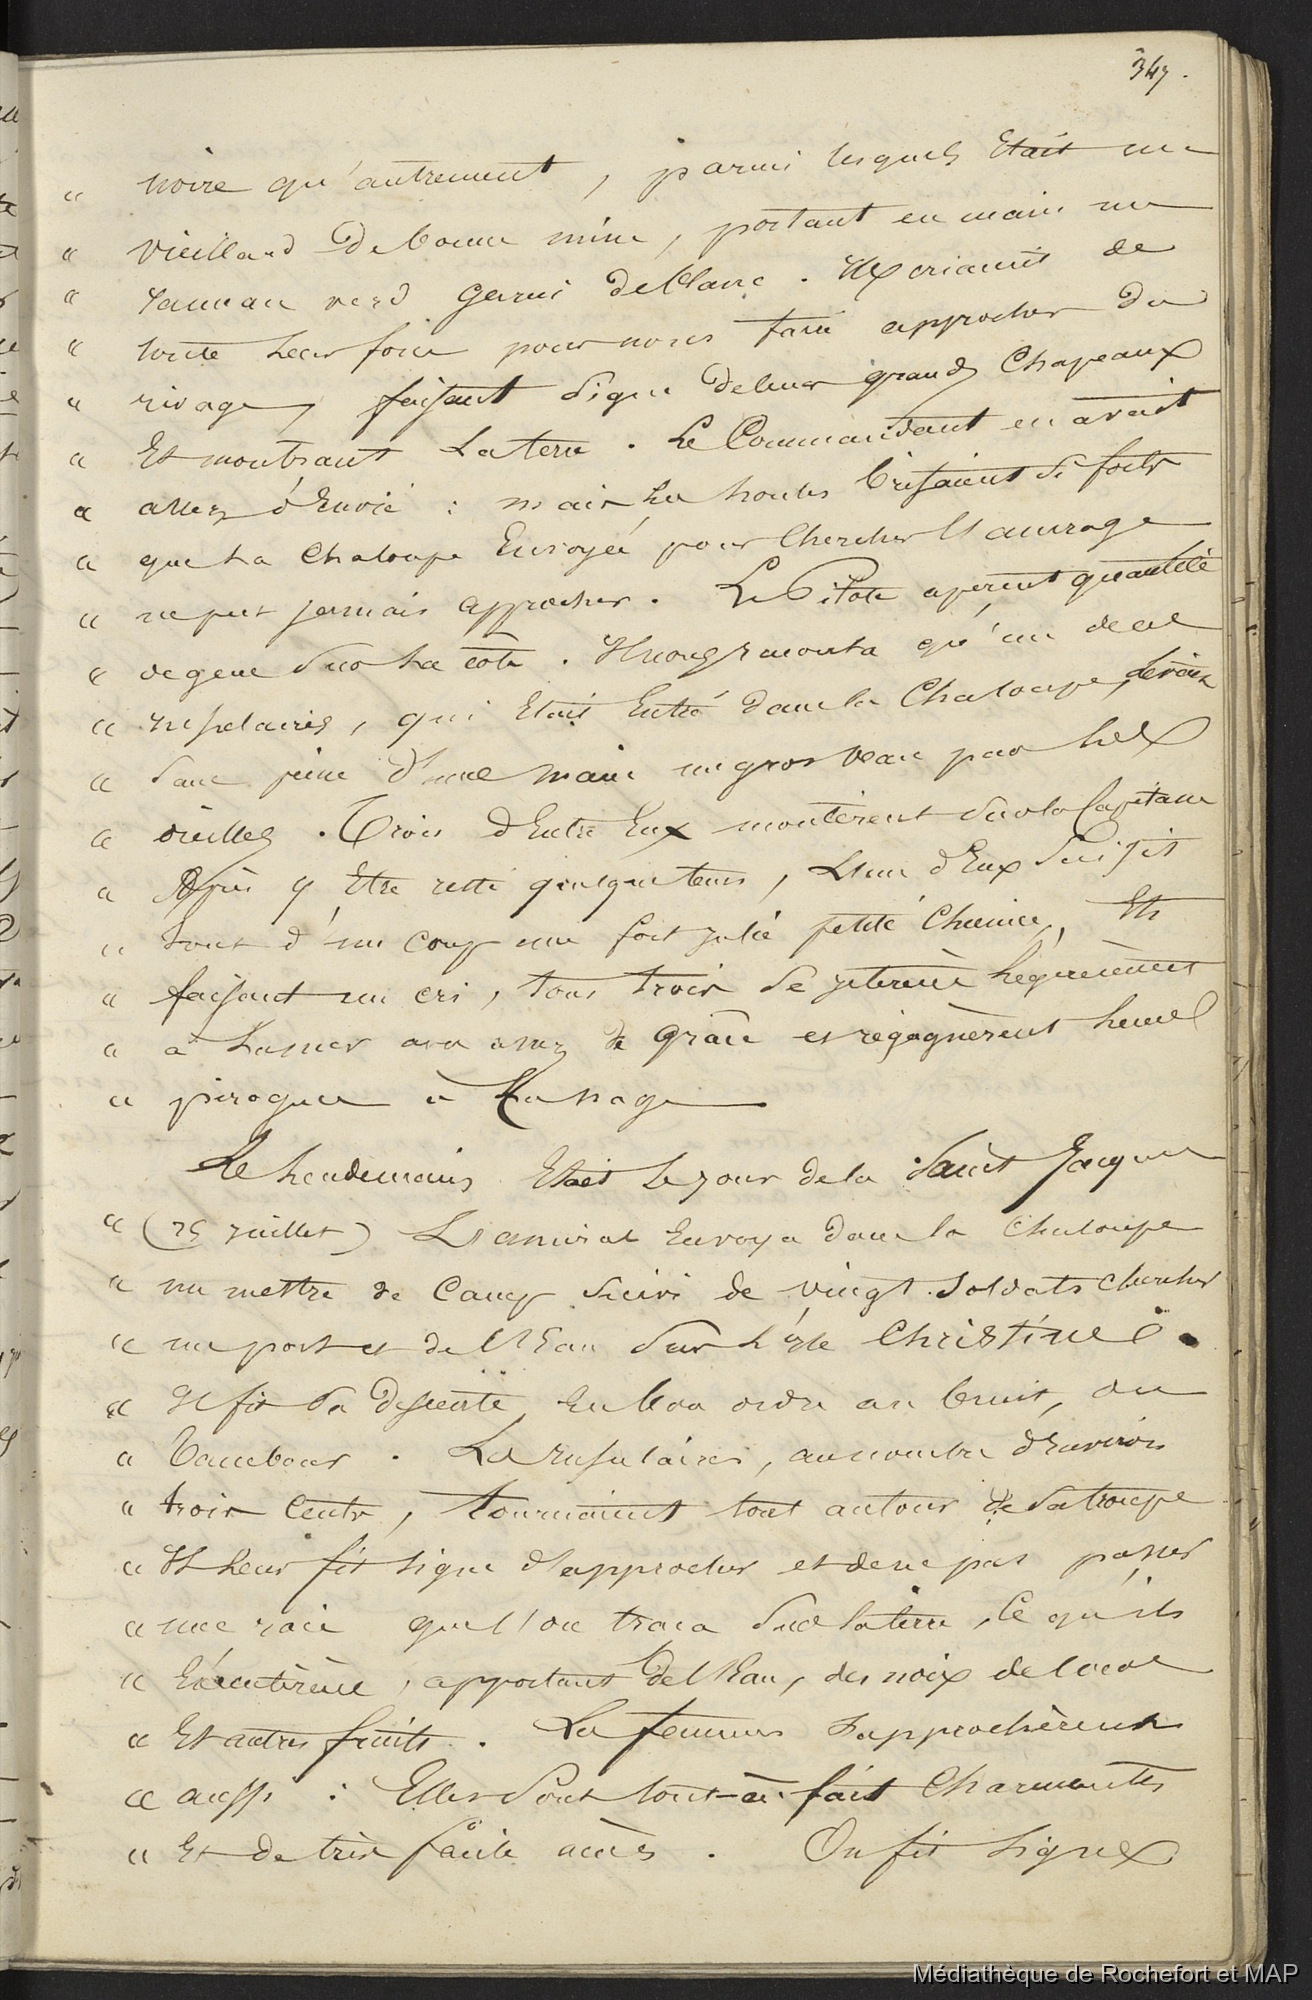 347.
" noire qu'autrement, parmi lesquels Etait un
" vieillard De bonne mine, portant en main un
" rameau verd garni De blanc. Ils criaient de
" toute Leur force pour nous faire approcher Du
" rivage, faisant Signe De leurs grands Chapeaux
" Et montrant La terre. Le Commandant en avait
" assez d'Envie : mais Les houles brisaient Si fort
" que La Chaloupe Envoyée pour Chercher L'ancrage
" ne put jamais approcher. Le Pilote aperçut quantité
" de gens Sur La côte. Il nous raconta qu'un de ces
" insulaires, qui Etait Entré dans la Chaloupe, leva
" Sans peine d'une main un gros veau par Les
" oreilles. Trois d'Entre Eux montèrent Sur la Capitane
" Après y Etre resté quelque tems, L'un d'Eux Saisit
" tout d'un coup une fort jolie petite Chienne, Et
" faisant un cri, tous trois Se jeterent Légèrement
" à La mer avec assez de grâce et regagnèrent Leurs
" pirogues à La nage
Le Lendemain Etait Le jour de la Saint Jacques
" (25 juillet) L'amiral Envoya dans la Chaloupe
" un mettre de Camp Suivi de vingt Soldats chercher
" un port et de L'Eau Sur L'isle Christine.
" Il fit Sa Descente En bon ordre au bruit, du
" Tambour. Les insulaires, au nombre d'Environ
" trois Cents, tournaient tout autour de Sa troupe
" Il Leur fit signe d'approcher et de ne pas passer
" une raie que l'on traca Sur la terre, Ce qu'ils
" Exécutèrent, apportant De L'Eau, des noix de Cocos
" Et autres fruits. Les femmes s'approchèrent
" aussi : Elles Sont tout-à-fait Charmantes
" Et De très facile accès. On fit Signe
Médiathèque de Rochefort et MAP